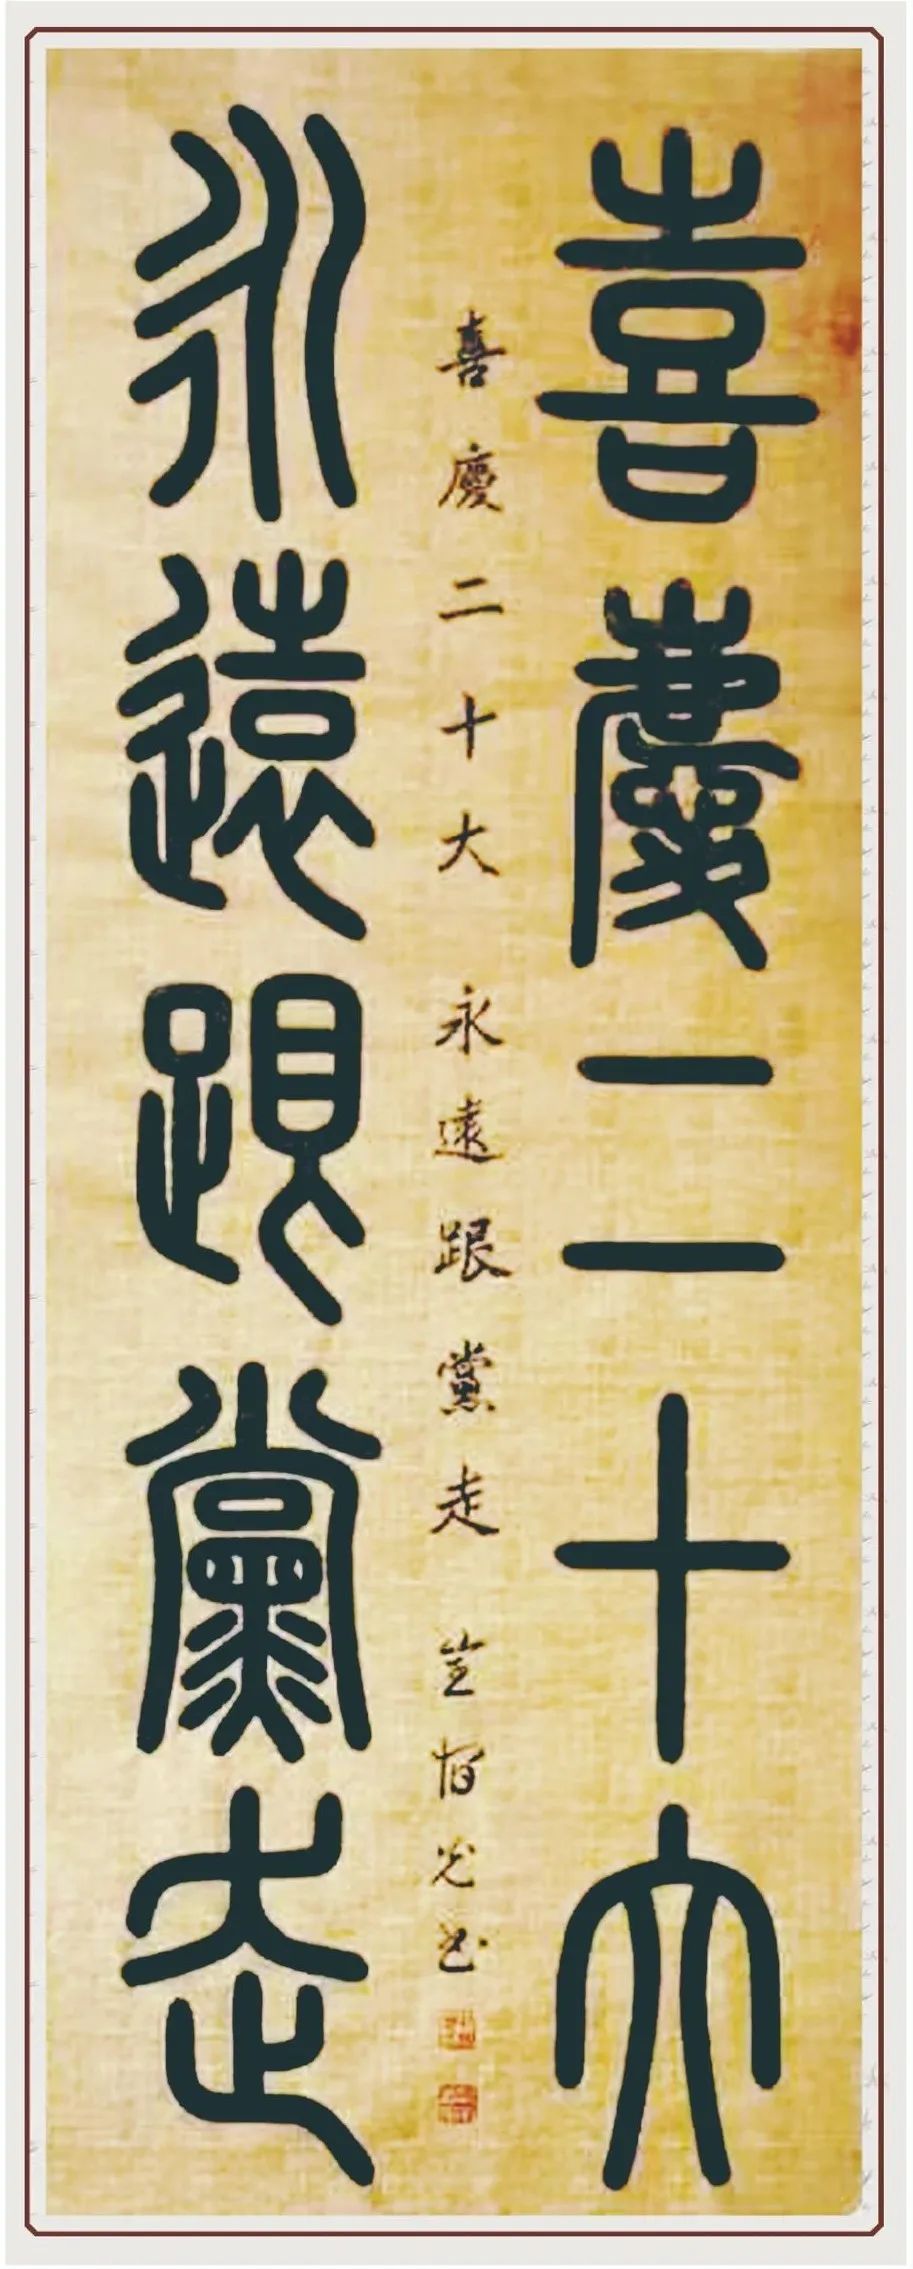 喜慶二十大
喜慶二十大永遠跟黨走 光书
永遠跟黨走